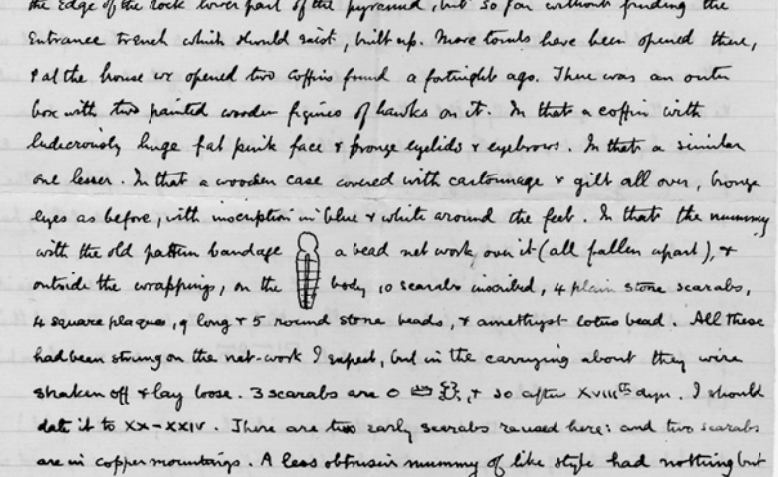 the edge of the rock lower part of the pyramid, but so far without finding the
Entrance trench which should exist, built up. More tombs have been opened there,
& at the house we opened two coffins found a fortnight ago. There was an outer
box with two painted wooden figures of hawks on it. In that a coffin with
ludicrously huge fat pink face & bronze eyelids & eyebrows. In that a similar
one lesser. In that a wooden case covered with cartonnage & gilt all over, bronze
eyes as before, with inscription in blue & white around the feet. In that the mummy
with the old pattern bandage a bead net work over it (all fallen apart), &
outside the wrappings, on the body 10 scarabs inscribed, 4 plain stone scarabs,
4 square plaques, 9 long & 5 round stone beads, & amethyst lotus bead. All these
had been strung on the net-work I expect, but in the carrying about they were
shaken off & lay loose. 3 scarabs are & so after XVIIIth dyn. I should
date it to XX-XXIV. There are two early scarabs reused here: and two scarabs
are in copper mountings. A less obtrusive mummy of like style had nothing but